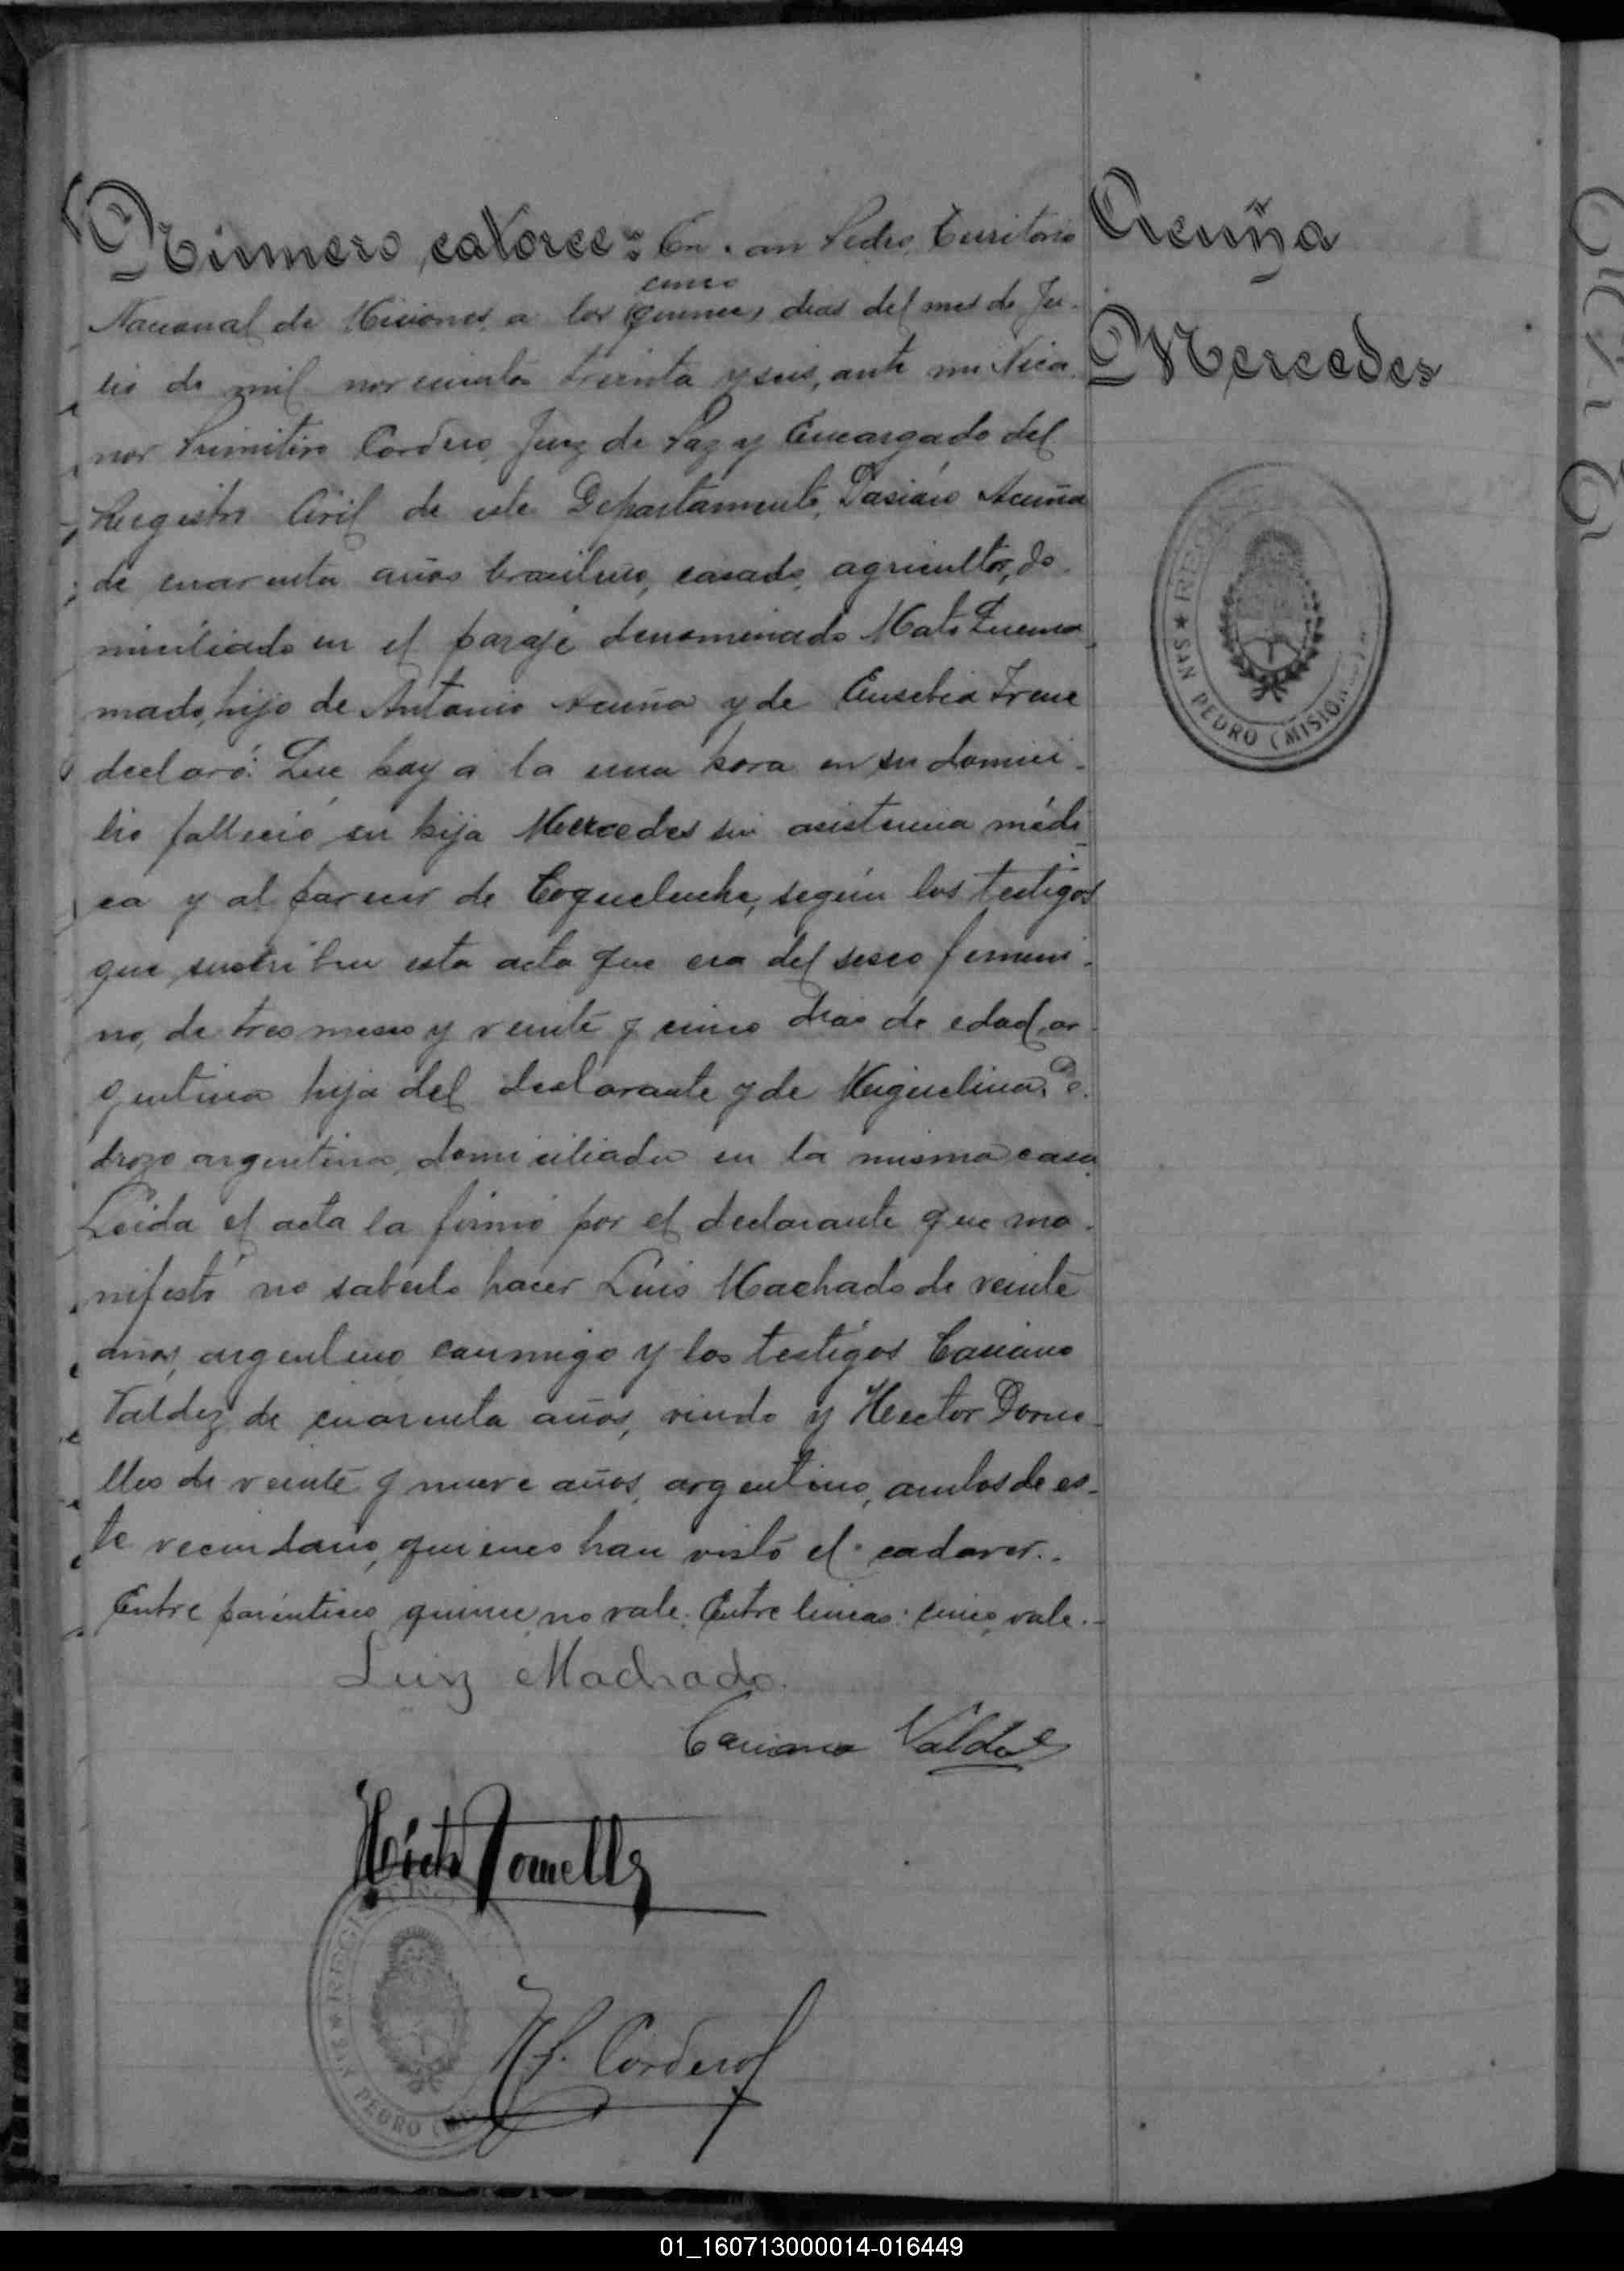 Número catorce: En San Pedro, Territorio
cinco
Nacional de Misiones, a los (quince) dias del mes de Ju-
lio de mil novecientos treinta y seis, ante mi Nica-
nor Primitivo Cordero, Juez de Paz y Encargado del
Registro Civil de este Departamento, Acuña
de cuarenta años brasilero, casado, agricultor, do-
miciliado en el paraje denominado Mato Quema-
mado, hijo de Antonio Acuña y de Eusebia Irene
declaró: Que hoy a la una hora en su domici-
lio falleció su hija Mercedes sin asistencia médi-
ca y al parecer de Coqueluche, según los testigos
que suscriben esta acta que era del sexo femeni-
no, de tres meses y veinte y cinco dias de edad, ar-
gentina hija del declarante y de Miguelina Pe-
drozo argentina, domiciliada en la misma casa
Leida el acta la firmó por el declarante que ma-
nifestó no saberlo hacer Luis Machado de veinte
años, argentino, conmigo y los testigos Casiano
Valdez de cuarenta años, viudo y Hector Dorne-
lles de veinte y nueve años, argentino, ambos de es-
te vecindario, quienes han visto el cadaver..
Entre parentisis quince no vale. Entre lineas: cinco, vale.-
Luiz Machado.
Casiano Valdez
N. P. Cordero
Acuña
Mercedes
★ SAN PEDRO (MISIONES)
★ SAN PEDRO
01_160713000014-016449